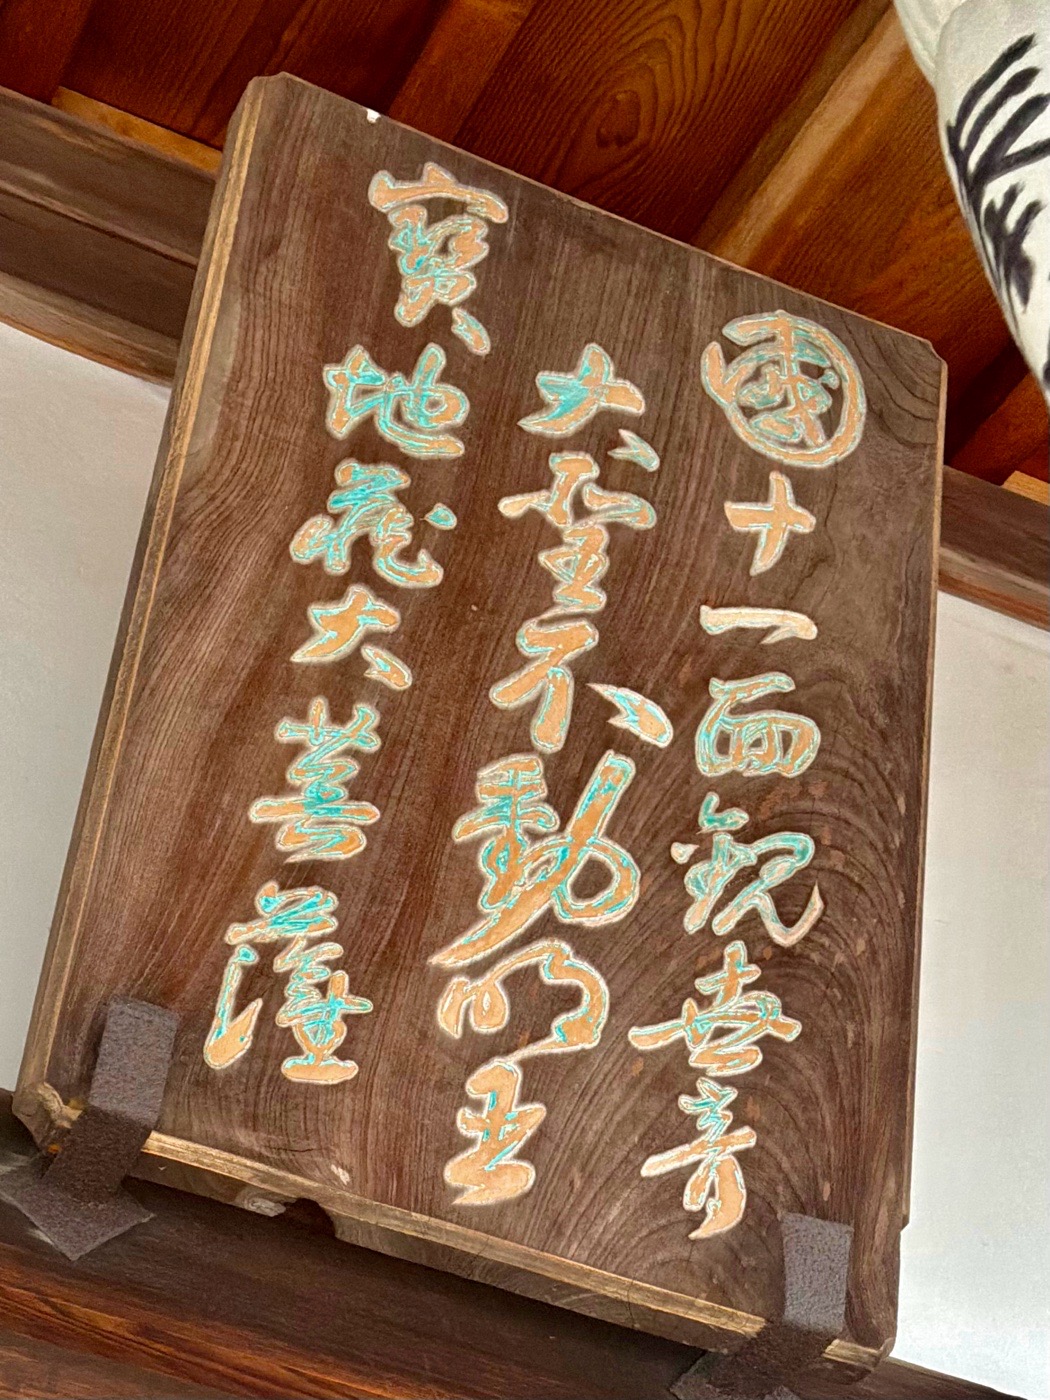 國十一面観世音
大聖不動明王
寶地蔵大菩薩